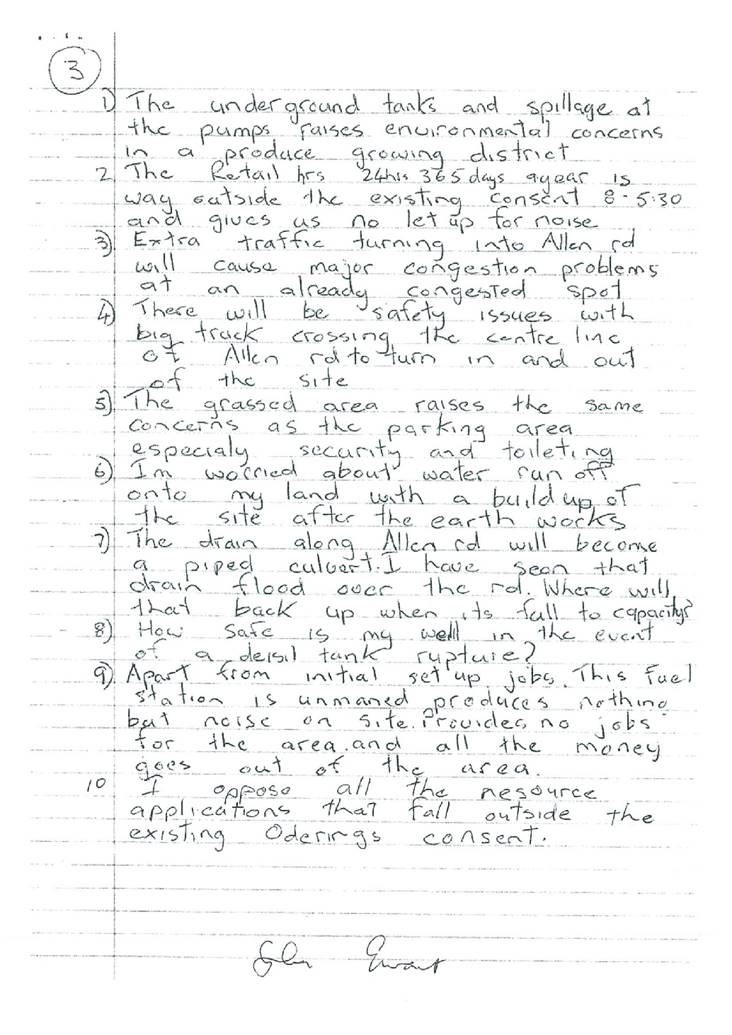 3
1) The underground tanks and spillage at
the pumps raises environmental concerns
in a produce growing district
2 The Retail hrs 24hrs 365days a year is
way outside the existing consent 8-5:30
and gives us no let up for noise
3) Extra traffic turning into Allen rd
will cause major congestion problems
at an already congested spot
4) There will be safety issues with
big truck crossing the centre line
of Allen rd to turn in and out
of the site
5) The grassed area raises the same
concerns as the parking area
especialy security and toileting
6) Im worried about water run off
onto my land with a build up of
the site after the earth works
7) The drain along Allen rd will become
a piped culvert. I have seen that
drain flood over the rd. Where will
that back up when its full to capacity?
8) How safe is my well in the event
of a deisil tank rupture?
9) Apart from initial set up jobs. This fuel
station is unmaned produces nothing
but noise on site. Provides no jobs
for the area. and all the money
goes out of the area.
10 I oppose all the resource
applications that fall outside the
existing Oderings consent.